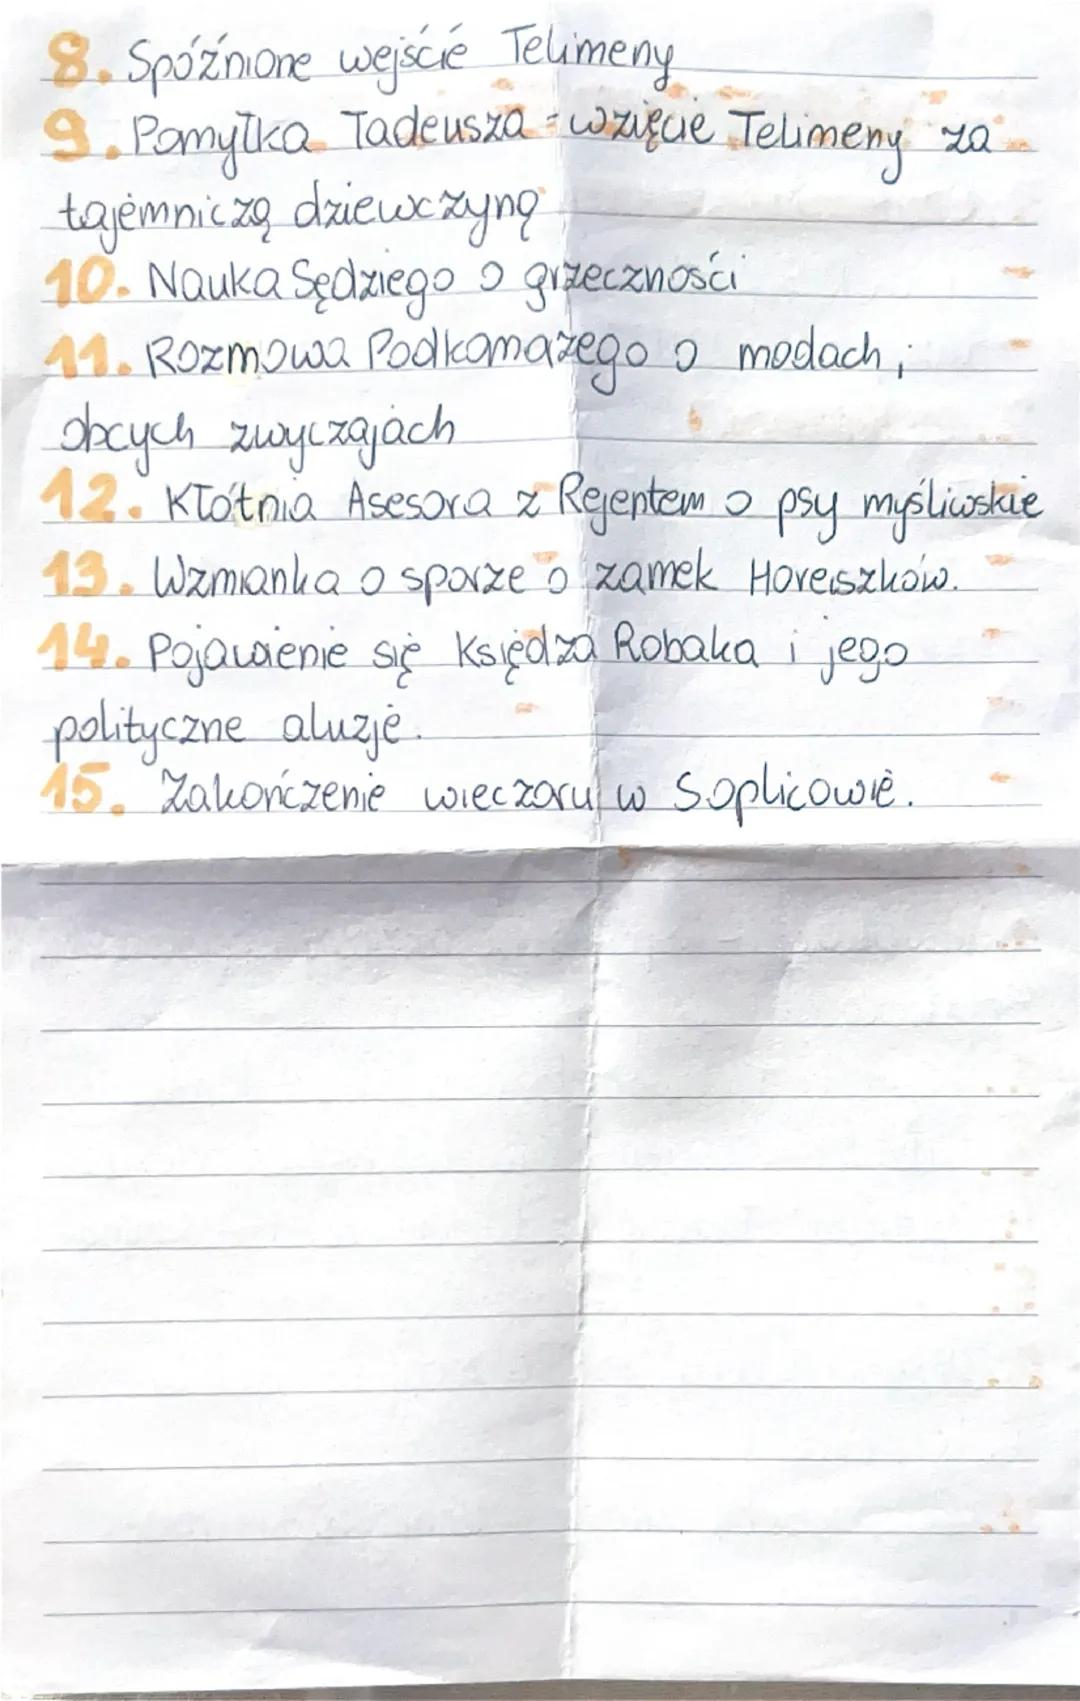 8. Spóźnione wejście Telimeny
9. Pomyłka Tadeusza - wzięcie Telimeny za
tajemniczą dziewczynę
10. Nauka Sędziego o grzeczności
11. Rozmowa Podkomażego o modach i
obcych zwyczajach
12. Kłótnia Asesora z Rejentem o psy myśliwskie
13. Wzmianka o sporze o zamek Horeszków.
14. Pojawienie się Księdza Robaka i jego
polityczne aluzje.
15. Zakończenie wieczoru w Soplicowie.